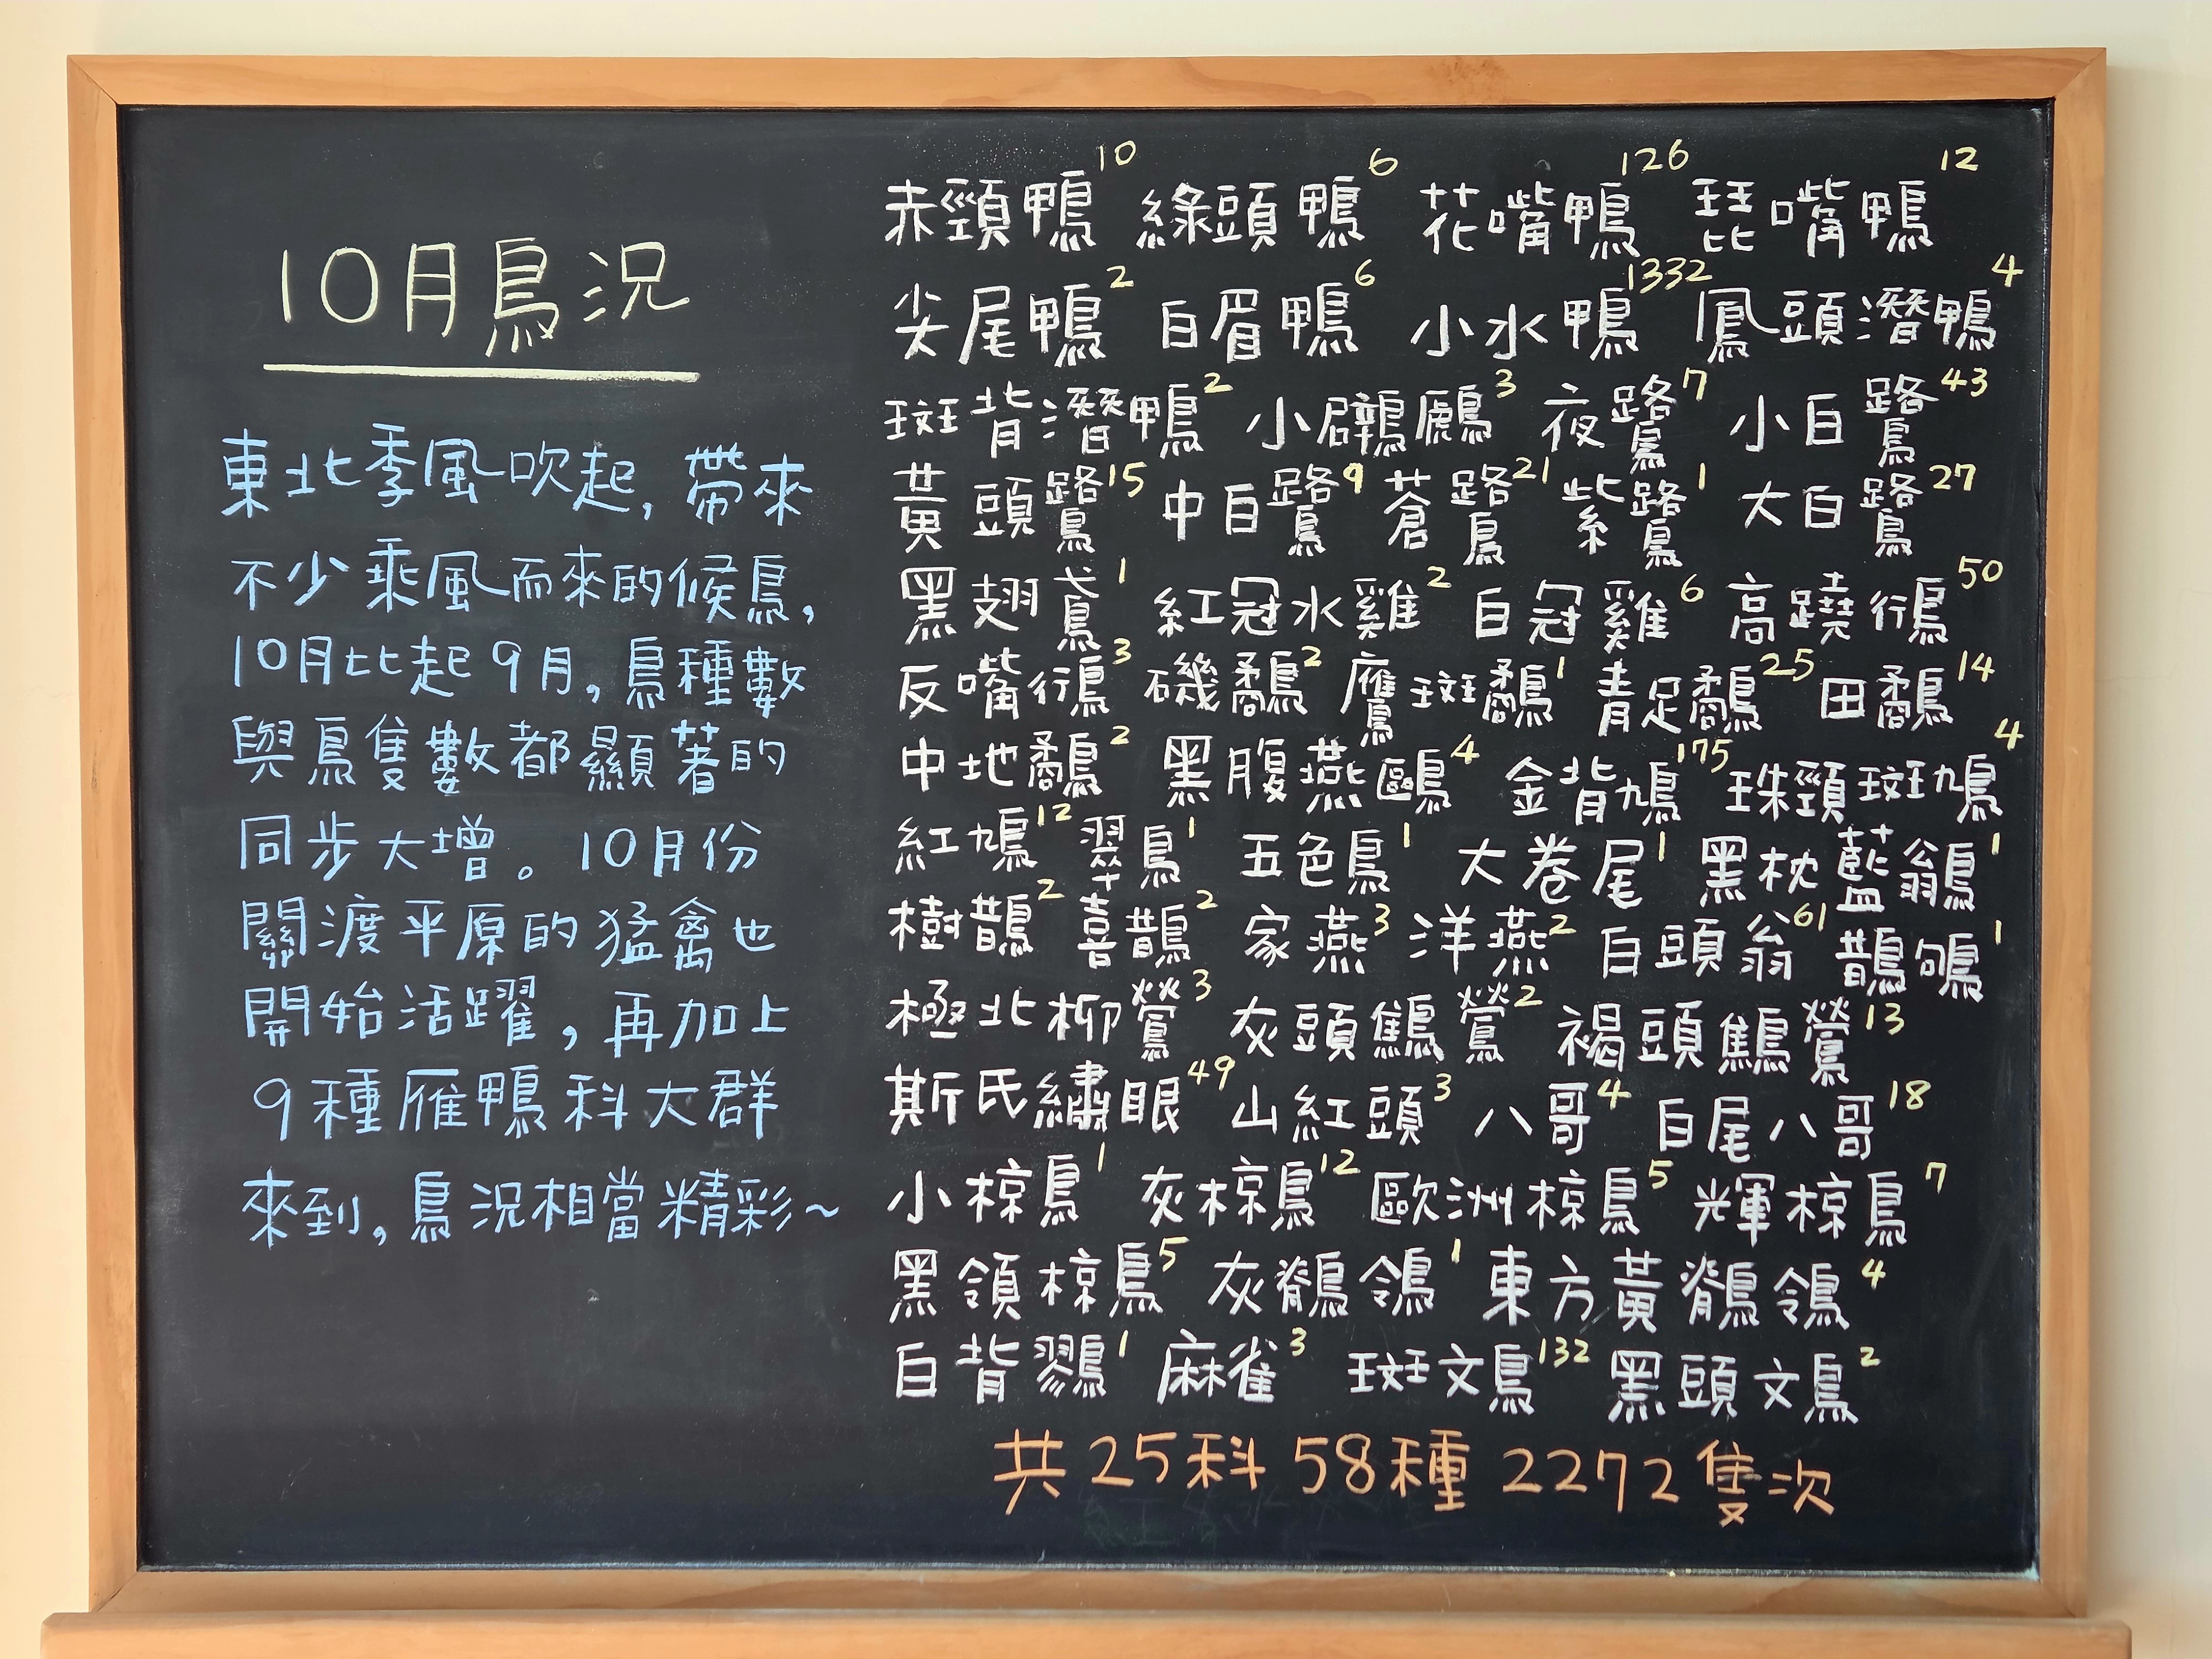 10月鳥況
東北季風吹起,帶來
不少乘風而來的候鳥,
10月比起9月,鳥種數
與鳥隻數都顯著的
同步大增。10月份
關渡平原的猛禽也
開始活躍,再加上
9種雁鴨科大群
來到,鳥況相當精彩~
赤頸鴨10 綠頭鴨6 花嘴鴨126 琵嘴鴨12
尖尾鴨2 白眉鴨6 小水鴨1332 鳳頭潛鴨4
斑背潛鴨2 小鸊鷉3 夜鷺7 小白鷺43
黃頭鷺15 中白鷺9 蒼鷺21 紫鷺1 大白鷺27
黑翅鳶1 紅冠水雞2 白冠雞6 高蹺行鳥50
反嘴行鳥3 磯鷸2 鷹斑鷸1 青足鷸25 田鷸14
中地鷸2 黑腹燕鷗4 金背鳩175 珠頸斑鳩4
紅鳩12 翠鳥1 五色鳥1 大卷尾1 黑枕藍鶲1
樹鵲2 喜鵲2 家燕3 洋燕2 白頭翁61 鵲鴝1
極北柳鶯3 灰頭鷦鶯2 褐頭鷦鶯13
斯氏繡眼49 山紅頭3 八哥4 白尾八哥18
小椋鳥1 灰椋鳥12 歐洲椋鳥5 輝椋鳥7
黑領椋鳥5 灰鶺鴒1 東方黃鶺鴒4
白背鷚1 麻雀3 斑文鳥132 黑頭文鳥2
共25科58種2272隻次